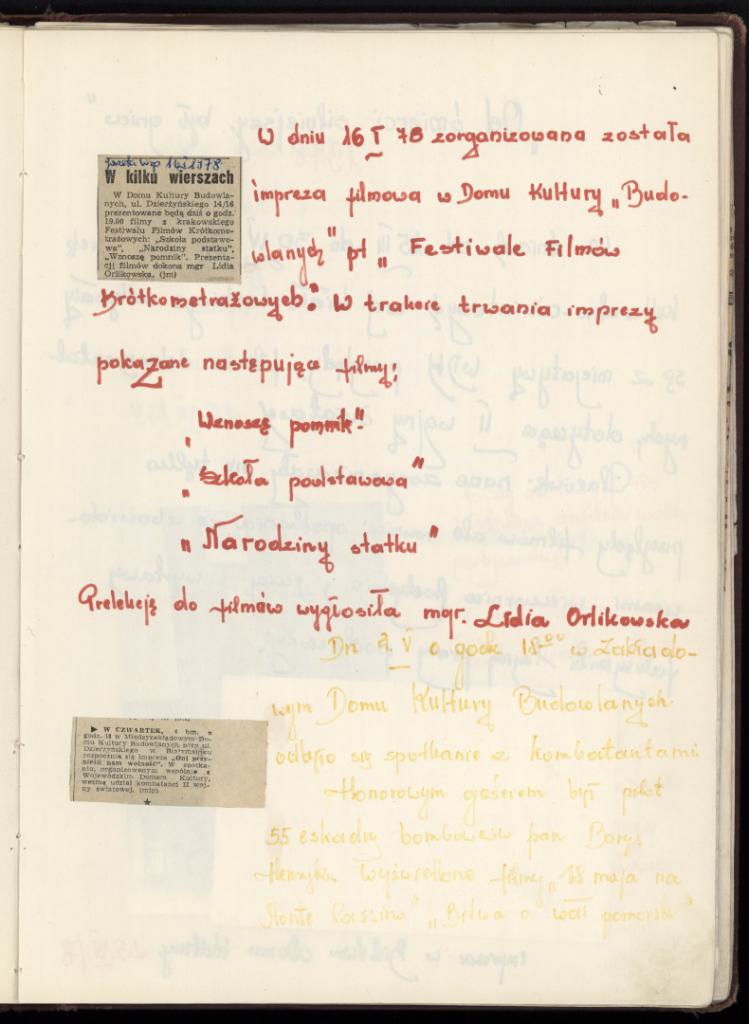 W dniu 16 I 78 zorganizowana została
impreza filmowa w Domu Kultury „Budo-
wlanych" pt „ Festiwale Filmów
Krótkometrażowych." W trakcie trwania imprezy
pokazane następujące filmy:
„Wznoszę pomnik"
„Szkoła podstawowa"
„Narodziny statku"
Prelekcję do filmów wygłosiła mgr. Lidia Orlikowska
16 I 1978
W kilku wierszach
W Domu Kultury Budowla-
nych, ul. Dzierżyńskiego 14/16
prezentowane będą dziś o godz.
19.00 filmy z krakowskiego
Festiwalu Filmów Krótkome-
trażowych: „Szkoła podstawo-
wa", „Narodziny statku",
„Wznoszę pomnik". Prezenta-
cji filmów dokona mgr Lidia
Orlikowska. (jm)
Dn 4. V o godz 18⁰⁰ w Zakłado-
wym Domu Kultury Budowlanych
odbyło się spotkanie z kombatantami
Honorowym gościem był pilot
55 eskadry bombowców pan Borys
Henryk. Wyświetlono filmy „18 maja na
Monte Cassino" „Bitwa o wał pomorski"
► W CZWARTEK, 4 bm. o
godz. 18 w Międzyzakładowym Do-
mu Kultury Budowlanych przy ul.
Dzierżyńskiego w Białymstoku
rozpocznie się impreza „Oni przy-
nieśli nam wolność". W spotka-
niu, organizowanym wspólnie z
Wojewódzkim Domem Kultury,
wezmą udział kombatanci II woj-
ny światowej. (mip)
★